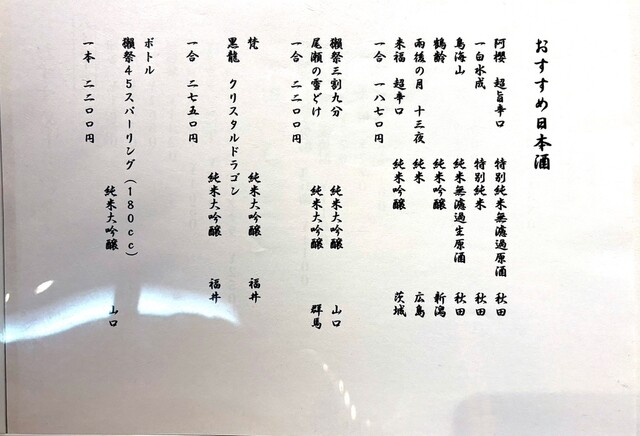 おすすめ日本酒
阿櫻 超旨辛口 特別純米無濾過原酒 秋田
一白水成 特別純米 秋田
鳥海山 純米無濾過生原酒 秋田
鶴齢 純米吟醸 新潟
雨後の月 十三夜 純米 広島
来福 超辛口 純米吟醸 茨城
一合 一八七〇円
獺祭三割九分 純米大吟醸 山口
尾瀬の雪どけ 純米大吟醸 群馬
一合 二二〇〇円
梵 純米大吟醸 福井
黒龍 クリスタルドラゴン 純米大吟醸 福井
一合 二七五〇円
ボトル
獺祭45スパーリング(180cc) 純米大吟醸 山口
一本 二二〇〇円